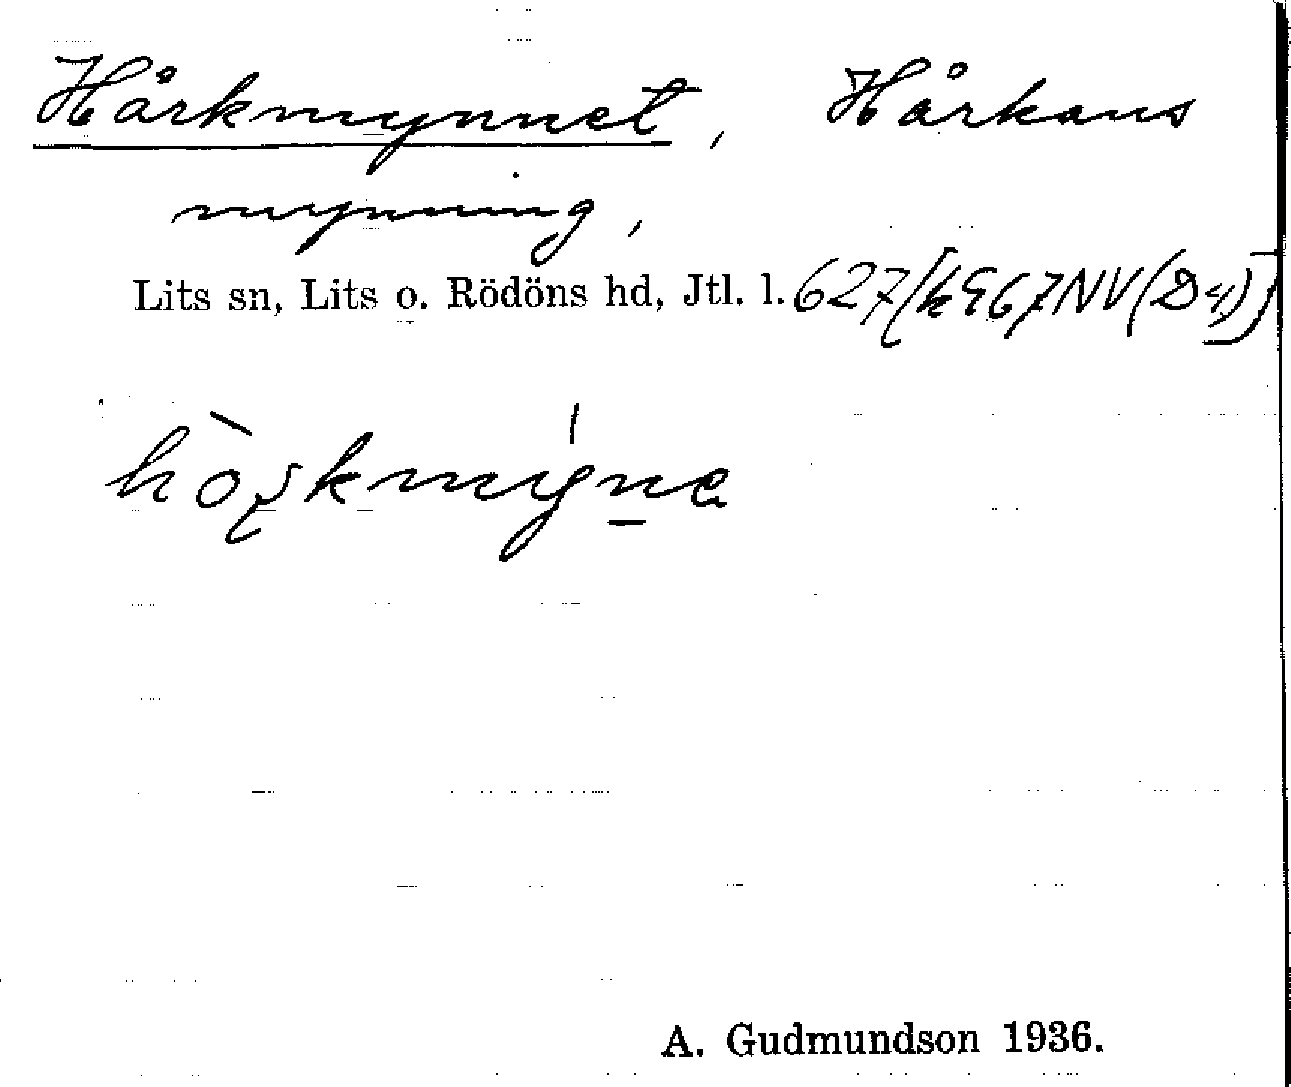 Hårkmynnet, Hårkans
mynning,
Lits sn, Lits o. Rödöns hd, Jtl. l. 627
A. Gudmundson 1936.